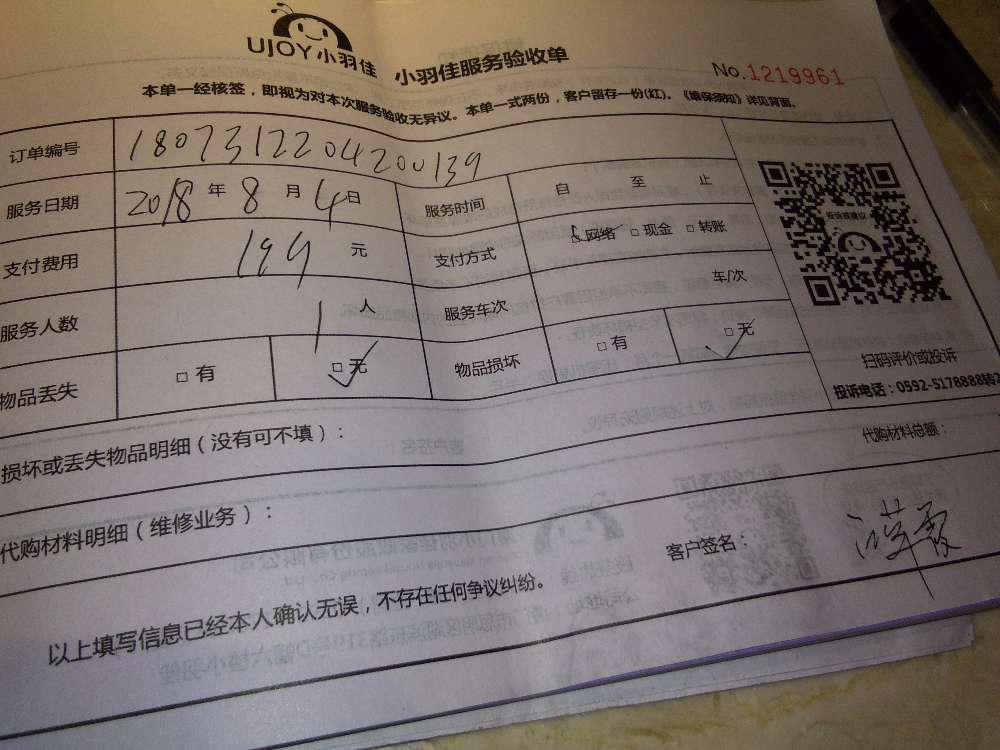 UJOY小羽佳 小羽佳服务验收单
No.1219961
本单一经核签，即视为对本次服务验收无异议。本单一式两份，客户留存一份(红)。《维保须知》详见背面。
订单编号 1807312204200139
服务日期 2018 年 8 月 4 日 服务时间 自 至 止
支付费用 199 元 支付方式 □网络 □现金 □转账
服务人数 1 人 服务车次 车/次
物品丢失 □有 □无 物品损坏 □有 □无
投诉或建议
扫码评价或投诉
投诉电话：0592-5178888转2
损坏或丢失物品明细（没有可不填）：
代购材料明细（维修业务）： 代购材料总额：
客户签名：
以上填写信息已经本人确认无误，不存在任何争议纠纷。